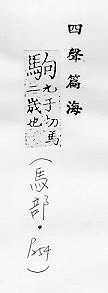 四聲篇海
駒九子切馬
二歲也
(馬部·P254)